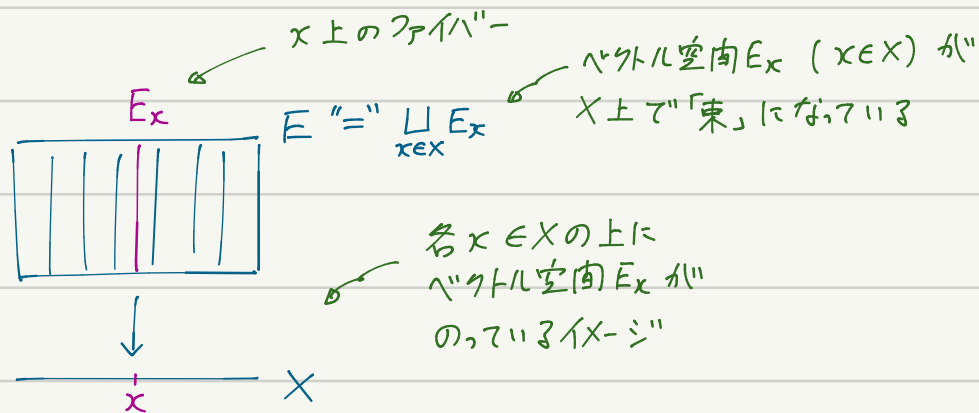 x上のファイバー
E_x
E "=" ⊔_{x∈X} E_x
ベクトル空間E_x (x∈X) が
X上で「束」になっている
各x∈Xの上に
ベクトル空間E_xが
のっているイメージ
X
x